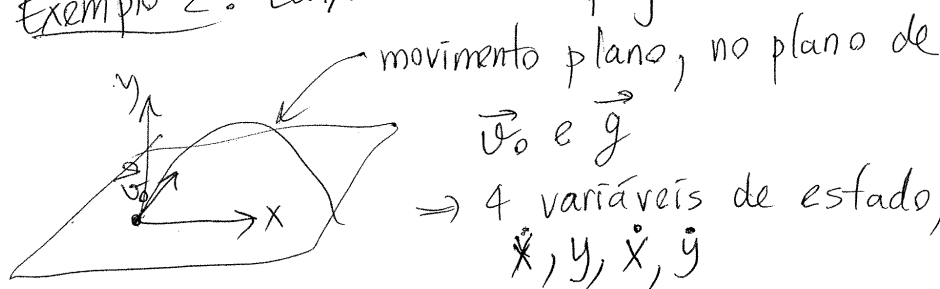 Exemplo 2:
movimento plano, no plano de
y
v⃗₀ e g⃗
v⃗₀
⇒ 4 variáveis de estado,
x
x, y, ẋ, ẏ